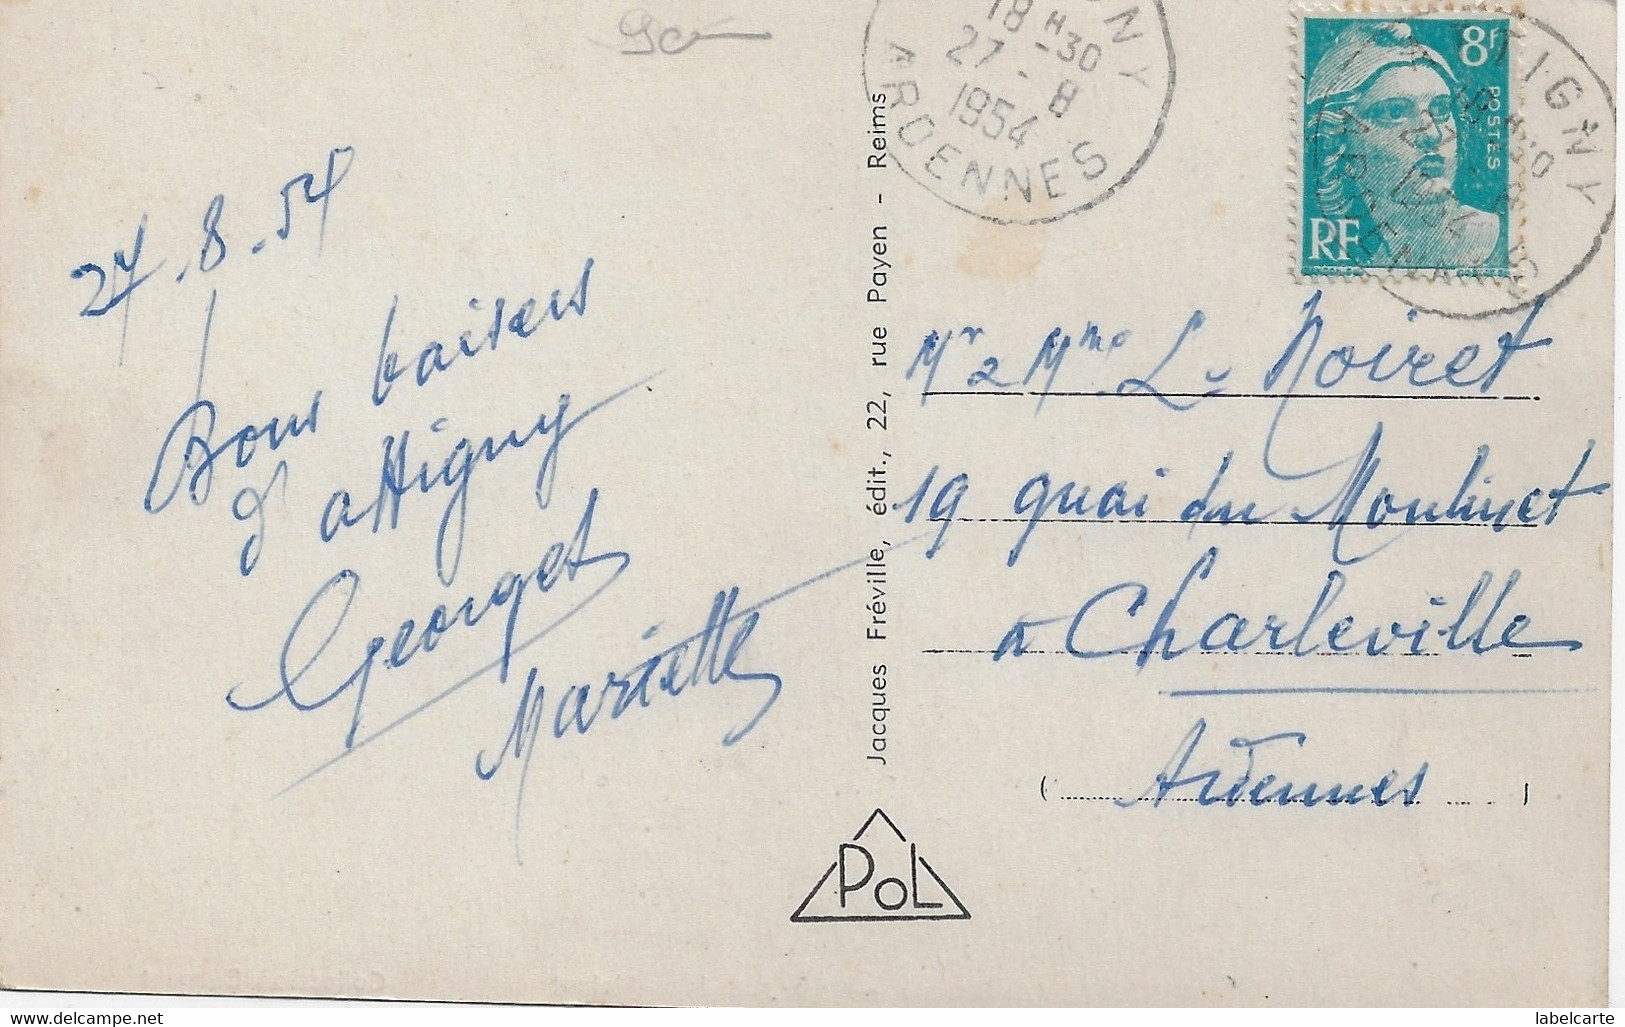 27-8-54
Bons baisers
d'attigny
Georget
Mariette
Jacques Fréville, édit., 22, rue Payen - Reims
PoL
18 H 30
27 - 8
1954
ARDENNES
8F
POSTES
RF
ATTIGNY
ARDENNES
Mr & Mme L. Noiret
19 quai du Moulinet
a Charleville
( Ardennes )
www.delcampe.net
labelcarte